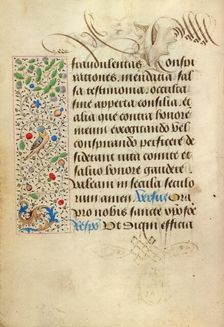 fraudulentas conspi
rationes, mendacia fal
sa testimonia. occulta
sine apperta consilia. et
quidquid contra honorem
meum exogitando vel
perficere de
siderant uita comite et
saluo honore gaudere
ualeam in secula seculo
rum amen. Versus Ora
pro nobis sancte
Respo Ut digni effica